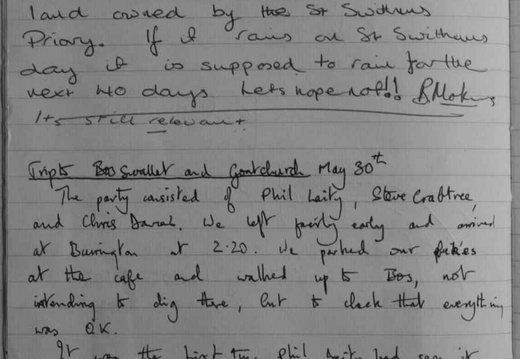 land owned by the St Swithins
Priory. If it rains on St Swithuns
day it is supposed to rain for the
next 40 days. Lets hope not!!
Its still relevant
Trip to Bos Swallet and Goatchurch May 30th
The party consisted of Phil Laity, Steve Crabtree,
and Chris. We left fairly early and arrived
at Burrington at 2.20. We parked our
at the cafe and walked up to Bos, not
intending to dig there, but to check that everything
was OK.
It was the first time Phil Laity had seen it